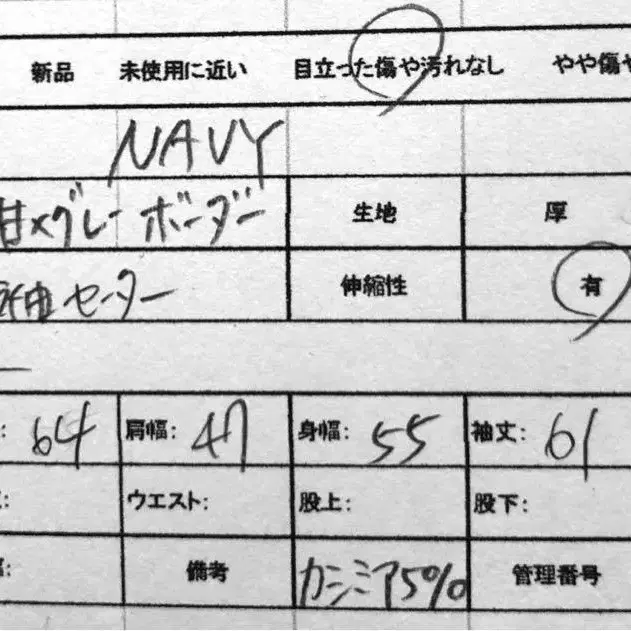 新品 未使用に近い 目立った傷や汚れなし やや傷や
NAVY
×グレー ボーダー 生地 厚
セーター 伸縮性 有
: 64 肩幅: 47 身幅: 55 袖丈: 61
: ウエスト: 股上: 股下:
: 備考 カシミア5% 管理番号